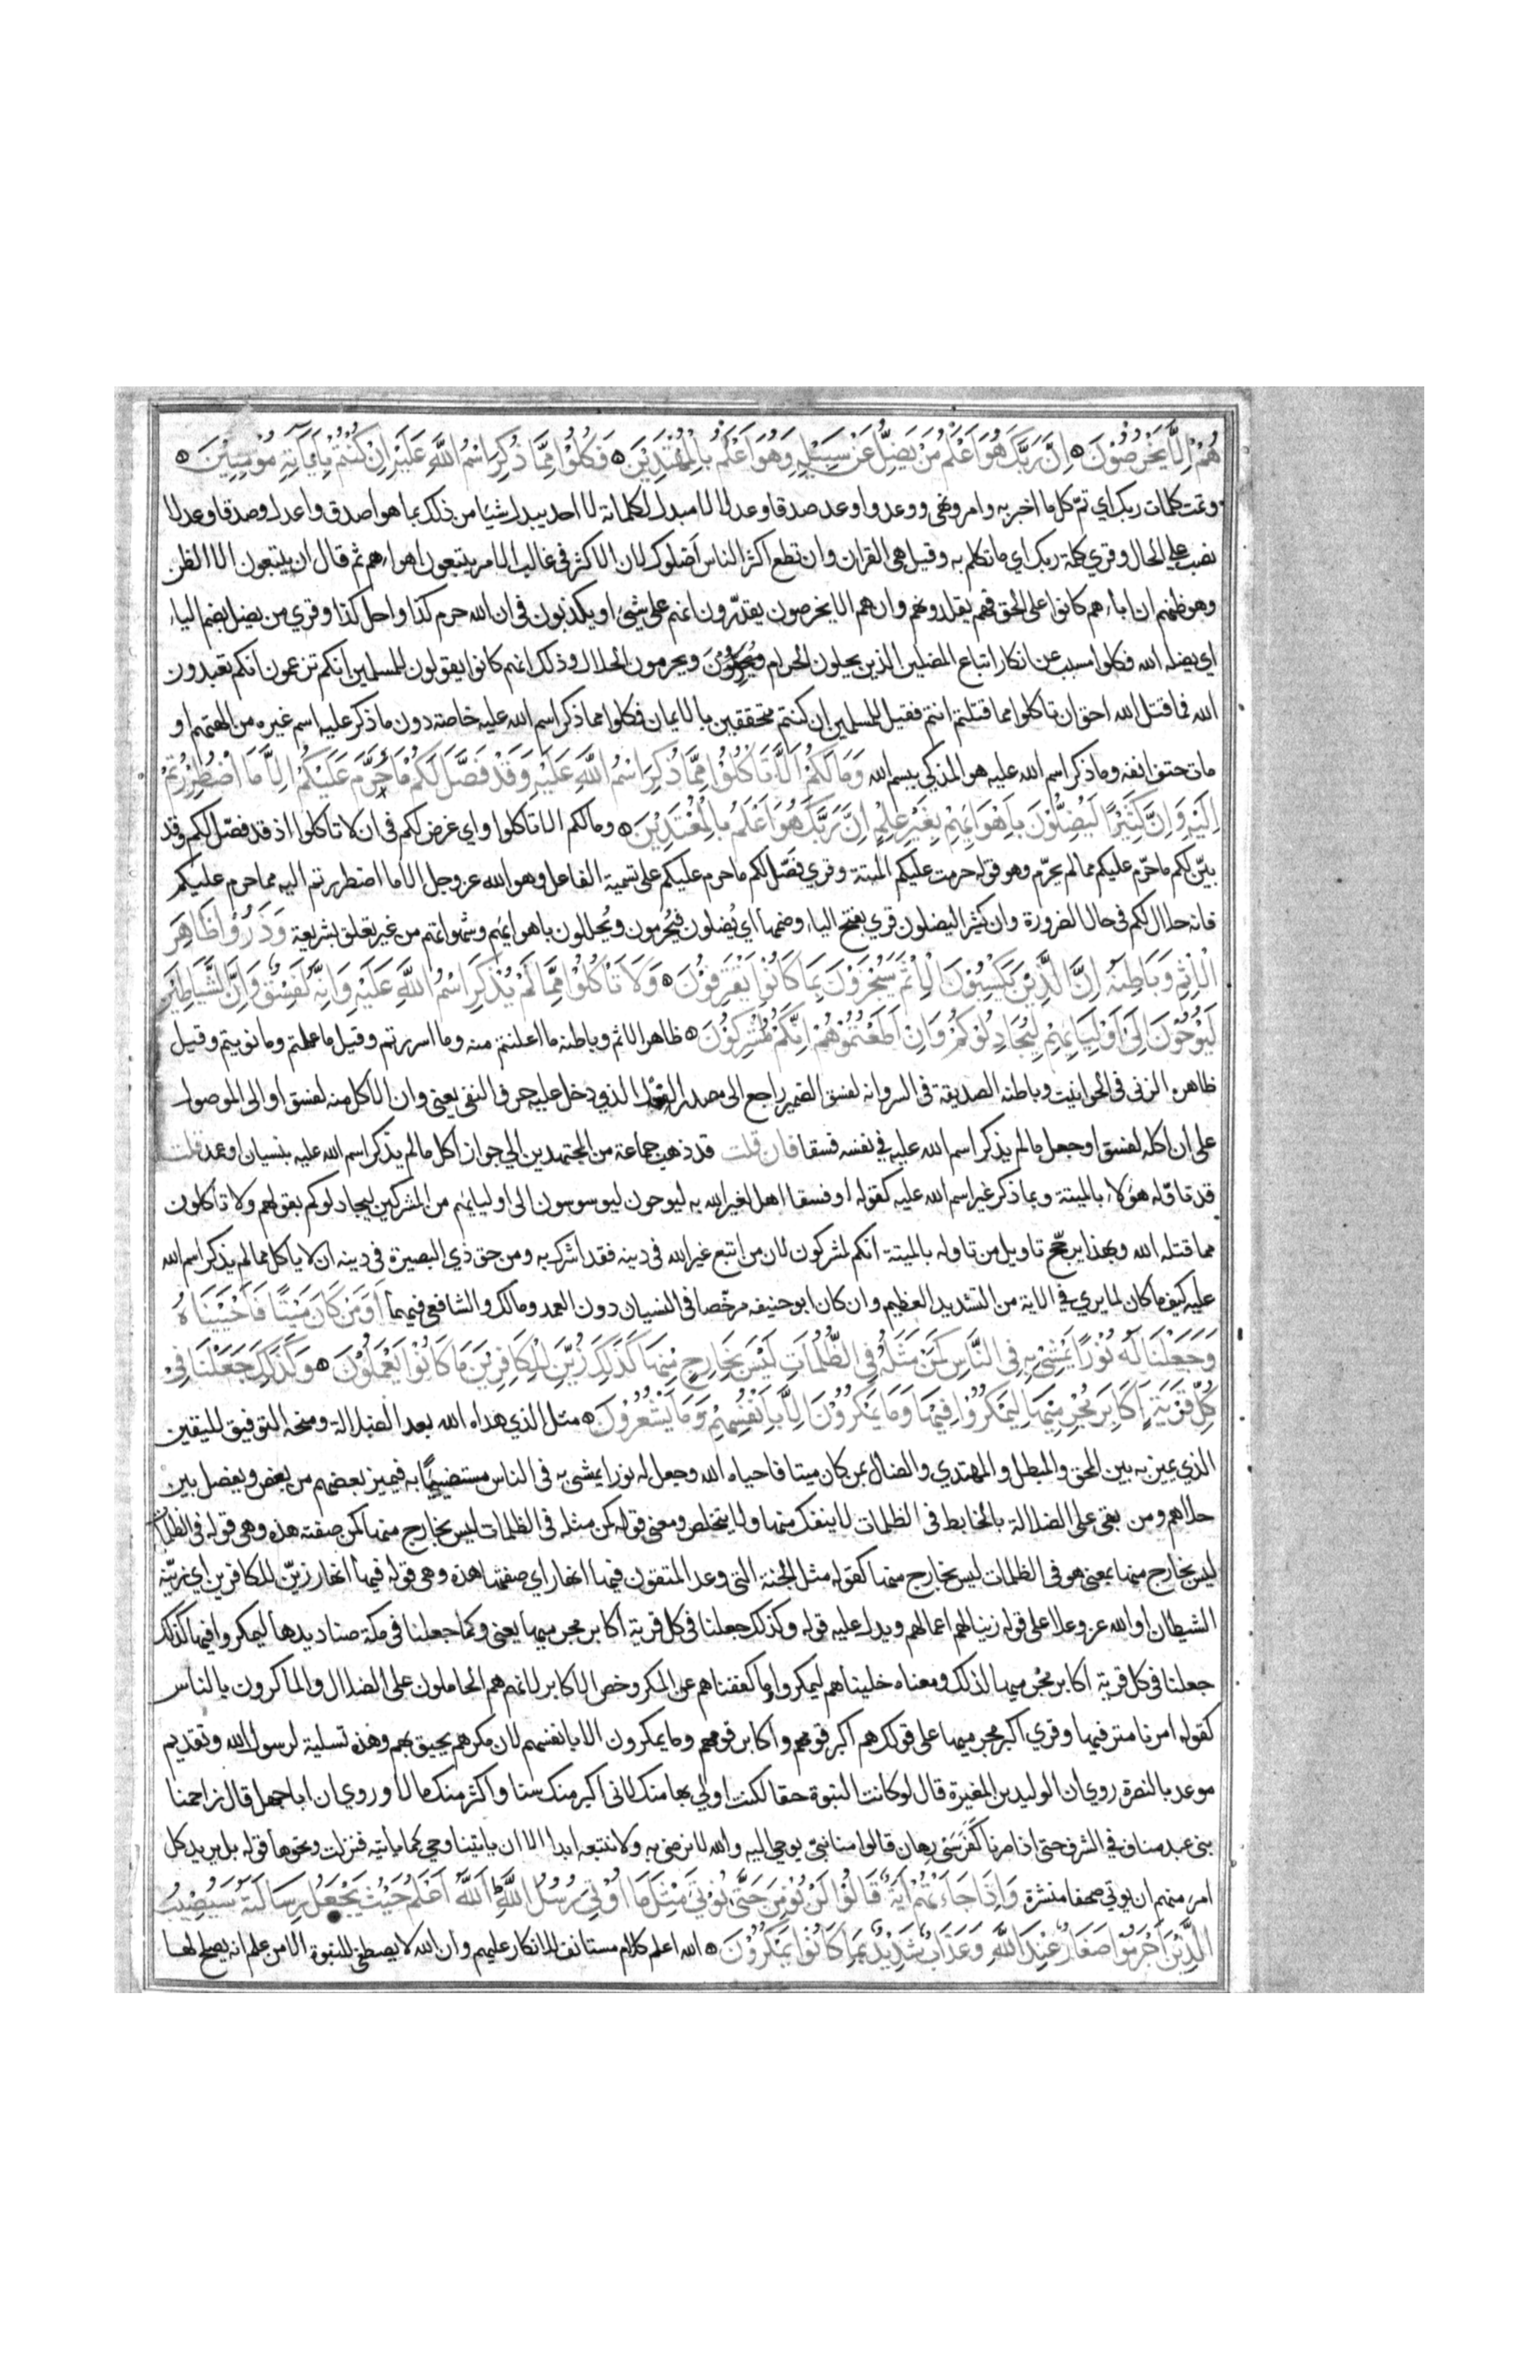 هُمْ اِلَّا يَخْرُصُوْنَ ۝ اِنَّ رَبَّكَ هُوَ اَعْلَمُ مَنْ يَضِلُّ عَنْ سَبِيْلِهٖ وَهُوَ اَعْلَمُ بِالْمُهْتَدِيْنَ ۝ فَكُلُوْا مِمَّا ذُكِرَ اسْمُ اللّٰهِ عَلَيْهِ اِنْ كُنْتُمْ بِاٰيَاتِهٖ مُؤْمِنِيْنَ ۝
وتمت كلمات ربك اي تمّ كل ما اخبر به وامر ونهى ووعد واوعد صدقا وعدلا لا مبدل لكلماته لا احد يبدل شيئا من ذلك بما هو اصدق واعدل وصدقا وعدلا
نصب على الحال وقري كلمة ربك اي ما تكلم به وقيل هي القران وان تطع اكثر الناس اضلوك لان الاكثر في غالب الامر يتبعون اهواءهم ثم قال ان يتبعون الا الظن
وهو ظنهم ان اباءهم كانوا على الحق فهم يقلدونهم وان هم الا يخرصون يقدّرون انهم على شيء او يكذبون في ان الله حرم كذا واحل كذا وقري من يضل بضم الياء
اي يضله الله فكلوا مسبب عن انكار اتباع المضلين الذين يحلون الحرام ويحرمون الحلال وذلك انهم كانوا يقولون للمسلمين انكم تزعمون انكم تعبدون
الله فما قتل الله احق ان تاكلوا مما قتلتم انتم فقيل للمسلمين ان كنتم متحققين بالايمان فكلوا مما ذكر اسم الله عليه خاصة دون ما ذكر عليه اسم غيره من الهتهم او
مات حتف انفه وما ذكر اسم الله عليه هو المذكى بسم الله وَمَا لَكُمْ اَلَّا تَاْكُلُوْا مِمَّا ذُكِرَ اسْمُ اللّٰهِ عَلَيْهِ وَقَدْ فَصَّلَ لَكُمْ مَا حَرَّمَ عَلَيْكُمْ اِلَّا مَا اضْطُرِرْتُمْ
اِلَيْهِ وَاِنَّ كَثِيْرًا لَيُضِلُّوْنَ بِاَهْوَائِهِمْ بِغَيْرِ عِلْمٍ اِنَّ رَبَّكَ هُوَ اَعْلَمُ بِالْمُعْتَدِيْنَ ۝ وما لكم الا تاكلوا واي غرض لكم في ان لا تاكلوا اذ قد فصّل لكم وقد
بيّن لكم ما حرّم عليكم مما لم يحرّم وهو قوله حرمت عليكم الميتة وقري فصّل لكم ما حرم عليكم على تسمية الفاعل وهو الله عز وجل الا ما اضطررتم اليه مما حرم عليكم
فانه حلال لكم في حال الضرورة وان كثيرا ليضلون قري بفتح الياء وضمها اي يُضلون فيُحرمون ويُحللون باهوائهم وشهواتهم من غير تعلق بشريعة وَذَرُوْا ظَاهِرَ
الْاِثْمِ وَبَاطِنَهُ اِنَّ الَّذِيْنَ يَكْسِبُوْنَ الْاِثْمَ سَيُجْزَوْنَ بِمَا كَانُوْا يَقْتَرِفُوْنَ ۝ وَلَا تَاْكُلُوْا مِمَّا لَمْ يُذْكَرِ اسْمُ اللّٰهِ عَلَيْهِ وَاِنَّهُ لَفِسْقٌ وَاِنَّ الشَّيَاطِيْنَ
لَيُوْحُوْنَ اِلٰى اَوْلِيَائِهِمْ لِيُجَادِلُوْكُمْ وَاِنْ اَطَعْتُمُوْهُمْ اِنَّكُمْ لَمُشْرِكُوْنَ ۝ ظاهر الاثم وباطنه ما اعلنتم منه وما اسررتم وقيل ما عملتم وما نويتم وقيل
ظاهره الزنى في الحوانيت وباطنه الصديقة في السر وانه لفسق الضمير راجع الى مصدر الفعل الذي دخل عليه حرف النفى يعنى وان الاكل منه لفسق او الى الموصول
على ان اكله لفسق او جعل ما لم يذكر اسم الله عليه في نفسه فسقا فان قلت قد ذهب جماعة من المجتهدين الى جواز اكل ما لم يذكر اسم الله عليه بنسيان او عمد قلت
قد تاوّله هؤلاء بالميتة وبما ذكر غير اسم الله عليه كقوله او فسقا اهل لغير الله به ليوحون ليوسوسون الى اوليائهم من المشركين ليجادلوكم بقولهم ولا تاكلون
مما قتله الله وبهذا يرجّح تاويل من تاوله بالميتة انكم لمشركون لان من اتبع غير الله في دينه فقد اشرك به ومن حق ذي البصيرة في دينه ان لا ياكل مما لم يذكر اسم الله
عليه كيف ما كان لما يري في الاية من التشديد العظيم وان كان ابو حنيفه مرخّصا في النسيان دون العمد ومالك والشافعي فيهما اَوَمَنْ كَانَ مَيْتًا فَاَحْيَيْنَاهُ
وَجَعَلْنَا لَهُ نُوْرًا يَمْشِيْ بِهِ فِي النَّاسِ كَمَنْ مَثَلُهُ فِي الظُّلُمَاتِ لَيْسَ بِخَارِجٍ مِنْهَا كَذٰلِكَ زُيِّنَ لِلْكَافِرِيْنَ مَا كَانُوْا يَعْمَلُوْنَ ۝ وَكَذٰلِكَ جَعَلْنَا فِيْ
كُلِّ قَرْيَةٍ اَكَابِرَ مُجْرِمِيْهَا لِيَمْكُرُوْا فِيْهَا وَمَا يَمْكُرُوْنَ اِلَّا بِاَنْفُسِهِمْ وَمَا يَشْعُرُوْنَ ۝ مثل الذي هداه الله بعد الضلالة ومنحه التوفيق لليقين
الذي يميز به بين المحق والمبطل والمهتدي والضال بمن كان ميتا فاحياه الله وجعل له نورا يمشى به في الناس مستضيئا به فيميز بعضهم من بعض ويفصل بين
حلاهم ومن بقى على الضلالة بالخابط في الظلمات لا ينفك منها ولا يتخلص ومعنى قوله كمن مثله في الظلمات ليس بخارج منها كمن صفته هذه وهى قوله في الظلمات
ليس بخارج منها بمعنى هو في الظلمات ليس بخارج منها كقوله مثل الجنة التى وعد المتقون فيها انهار اي صفتها هذه وهى قوله فيها انهار زيّن للكافرين اي زيّنه
الشيطان او الله عز وعلا على قوله زينا لهم اعمالهم ويدل عليه قوله وكذلك جعلنا في كل قرية اكابر مجرميها يعنى وكما جعلنا في مكة صناديدها ليمكروا فيها كذلك
جعلنا في كل قرية اكابر مجرميها لذلك ومعناه خليناهم ليمكروا وما كففناهم عن المكر وخص الاكابر لانهم هم الحاملون على الضلال والماكرون بالناس
كقوله امرنا مترفيها وقري اكبر مجرميها على قولك هم اكبر قومهم واكابر قومهم وما يمكرون الا بانفسهم لان مكرهم يحيق بهم وهذه تسلية لرسول الله وتقديم
موعد بالنصرة روي ان الوليد بن المغيرة قال لو كانت النبوة حقا لكنت اولي بها منك لانى اكبر منك سنا واكثر منك مالا وروي ان ابا جهل قال زاحمنا
بنى عبد مناف في الشرف حتى اذا صرنا كفرسَى رهان قالوا منا نبىّ يوحى اليه والله لا نرضى به ولا نتبعه ابدا الا ان ياتينا وحي كما ياتيه فنزلت ونحوها قوله بل يريد كل
امرئ منهم ان يوتي صحفا منشرة وَاِذَا جَاءَتْهُمْ اٰيَةٌ قَالُوْا لَنْ نُؤْمِنَ حَتّٰى نُؤْتٰى مِثْلَ مَا اُوْتِيَ رُسُلُ اللّٰهِ اَللّٰهُ اَعْلَمُ حَيْثُ يَجْعَلُ رِسَالَتَهُ سَيُصِيْبُ
الَّذِيْنَ اَجْرَمُوْا صَغَارٌ عِنْدَ اللّٰهِ وَعَذَابٌ شَدِيْدٌ بِمَا كَانُوْا يَمْكُرُوْنَ ۝ الله اعلم كلام مستانف للانكار عليهم وان الله لا يصطفى للنبوة الا من علم انه يصلح لها